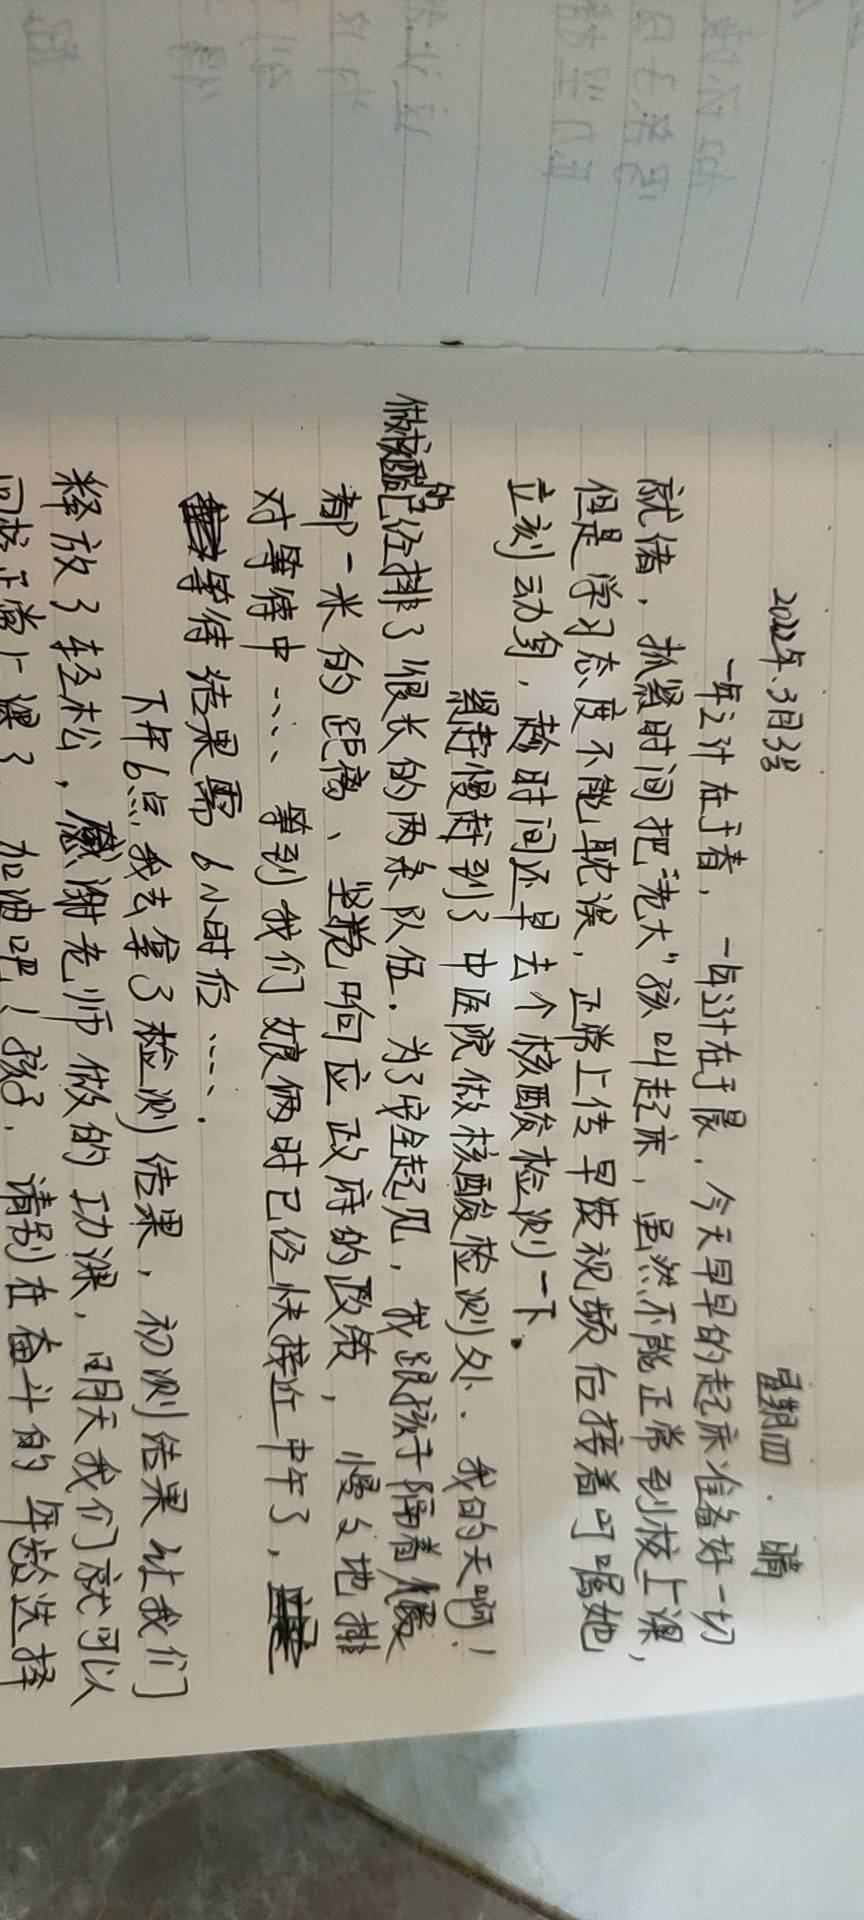 2022年.3月3号 星期四. 晴
一年之计在于春，一年之计在于晨．今天早早的起床准备好一切
就绪，抓紧时间把"老大"孩叫起床，虽然不能正常到校上课，
但是学习态度不能耽误，正常上传早读视频后接着叮嘱她
立刻动身，趁时间还早去个核酸检测一下。
紧赶慢赶到了中医院做核酸检测处．我的天啊！
做核酸的已经排了很长的两条队伍．为了安全起见，我跟孩子隔着
都一米的距离、坚决响应政府的政策，慢々地排
对等待中……等到我们娘俩时已经快接近中午了，
等待结果需6小时后……．
下午6点，我去拿了检测结果，初测结果让我们
释放了轻松，感谢老师做的功课，明天我们就可以
回校正常上课了．加油吧！孩子．请别在奋斗的年龄选择